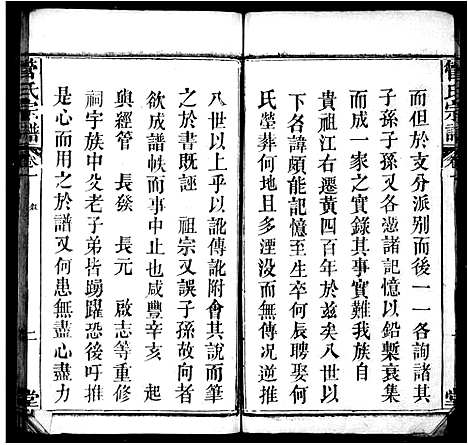 管氏宗譜
卷一
而但於支分派别而後一一各詢諸其
子子孫子孫又各遡諸記憶以鉛槧裒集
成一家之實錄其事實難我族自
貴祖江右遷黃四百年於兹矣八世以
下各諱頗能記憶至生卒何辰聘娶何
氏塋葬何地且多湮没不傳而欲推
八世以上乎以訛傳訛附會其説而筆
之於書既誣　祖宗又誤子孫故向來
欲成譜帙而未就也咸豐辛亥　起
與經管　長發　長元　啟志等重修
祠宇族中父老子弟皆踴躍恐後吁推
是心而用之於譜又何患無盡心盡力
管氏宗譜
卷一
叙
二
堂